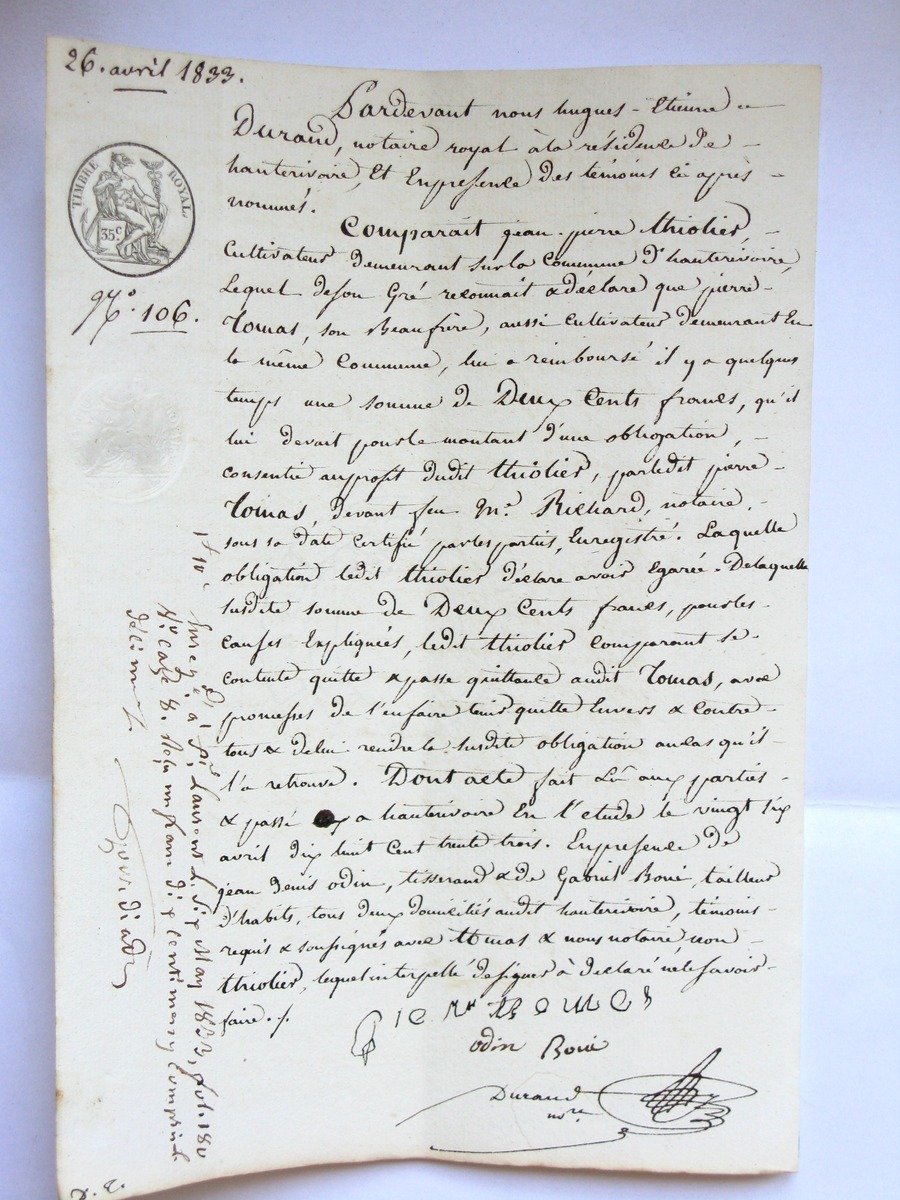 26. avril 1833.
TIMBRE ROYAL
35 c
N.° 106.
Pardevant nous hugues-Etienne
Durand, notaire royal à la résidence De
hauterivoire, Et En presence Des témoins ci après
nommés.
Comparait jean-pierre thiolier,
Cultivateur demeurant sur la Commune D'hauterivoire,
Lequel de son Gré reconnait & déclare que pierre
Tomas, son Beaufrère, aussi Cultivateur demeurant En
la même Commune, lui a remboursé il y a quelques
temps une somme de Deux Cents francs, qu'il
lui devait pour le montant d'une obligation,
consentie au profit dudit thiolier, par ledit pierre
Tomas, devant feu M.e Richard, notaire,
sous sa date certifié par les parties, Enregistré. Laquelle
obligation ledit thiolier déclare avoir Egarée. De laquelle
susdite somme de Deux Cents francs, pour les
causes Expliquées, ledit thiolier comparant se
contente quitte & passe quittance audit Tomas, avec
promesses de l'en faire tenir quitte Envers & contre
tous & de lui rendre la susdite obligation au cas qu'il
l'a retrouve. Dont acte fait Lû aux parties
& passé a hauterivoire En l'etude le vingt six
avril dix huit Cent trente trois. En presence de
jean denis odin, tisserand & de Gabriel Boué, tailleur
d'habits, tous deux domiciliés audit hauterivoire, témoins
requis & soussignés avec tomas & nous notaire non
thiolier, lequel interpellé de signer à déclaré ne le savoir
faire ./.
odin Boué
Durand
n.re
1f 10c
à S.t Laurent le six May 1833, fol. 180
R.o case 8. Reçu un franc dix centimes compris le
décime